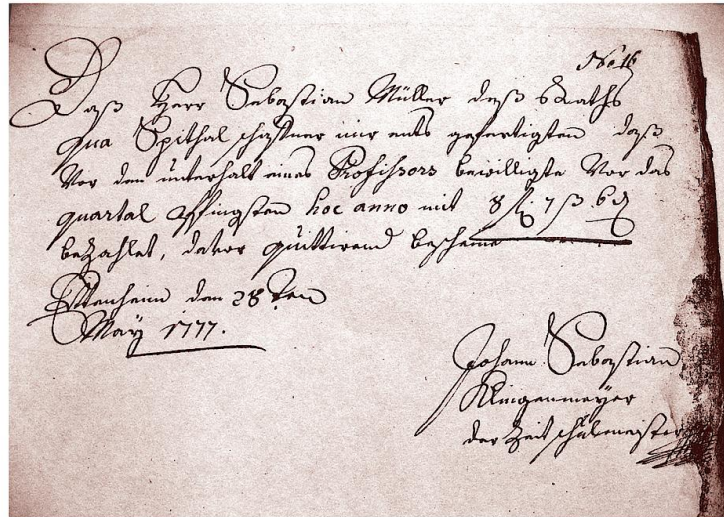 No 16
Daß Herr Sebastian Müller deß Raths
qua Spithalschaffner mir ents gefertigten daß
Vor den unterhalt eines Professors bewilligte Vor das
quartal Pfingsten hoc anno mit 8 7 ß 6 d
bezahlet, davor quittirend bescheine
Ettenheim den 28ten
May 1777.
Johann Sebastian
Klingenmeyer
der Zeit schulmeister